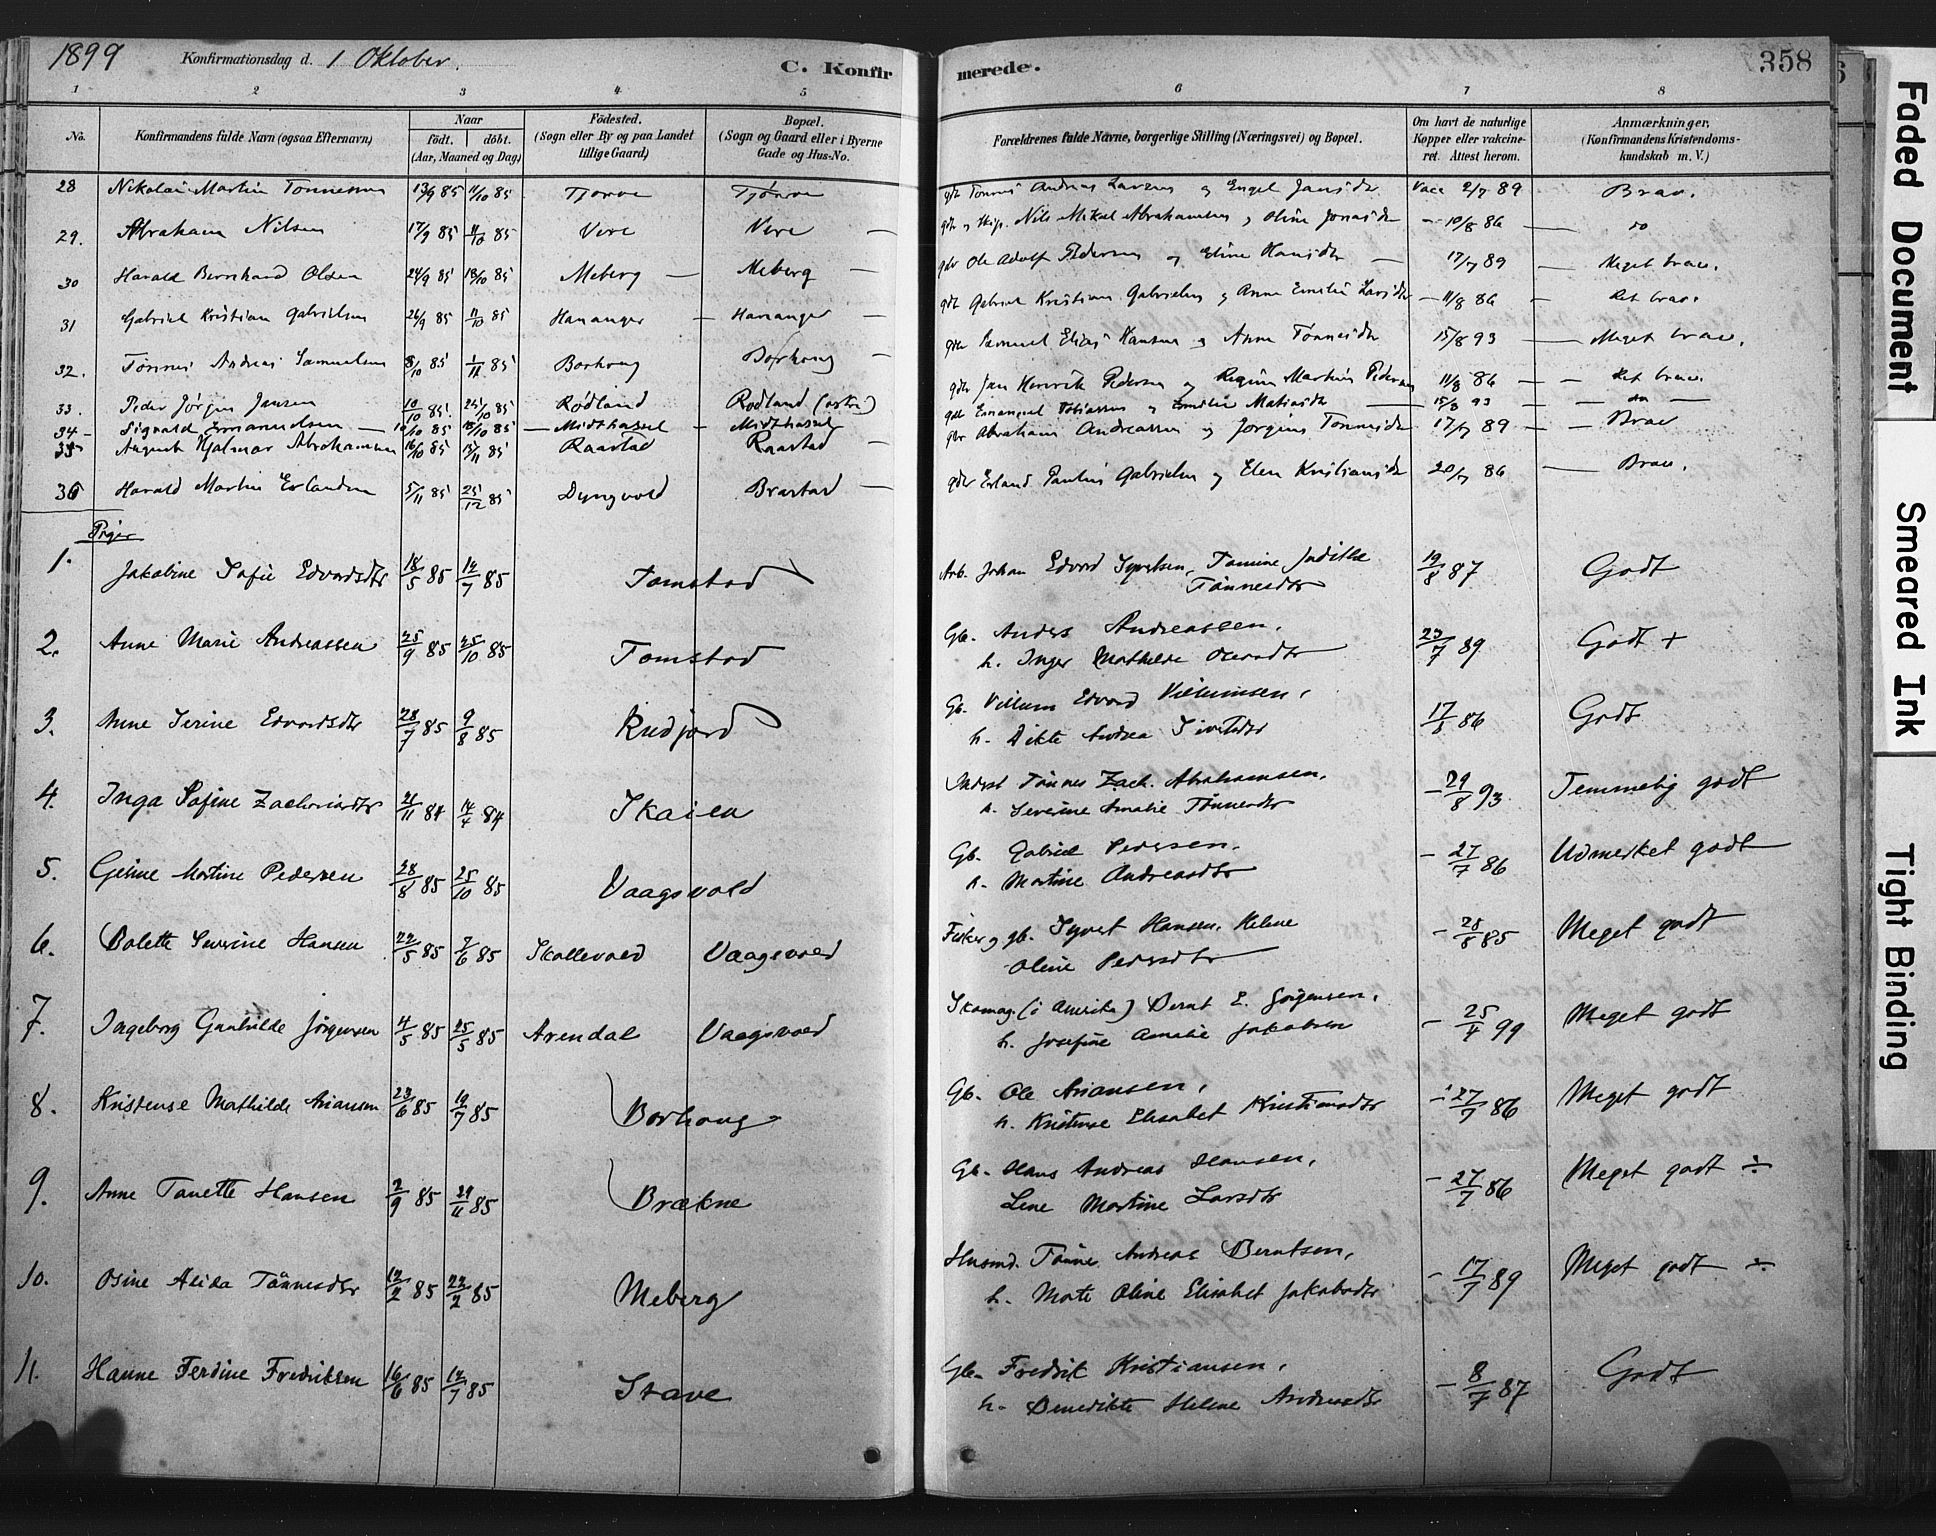 1899 Konfirmationsdag d. 1 Oktober. C. Konfir merede. 358
1 2 3 4 5 6 7 8
No. Konfirmandens fulde Navn (ogsaa Efternavn) Naar Fødested. Bopæl. Forældrenes fulde Navne, borgerlige Stilling (Næringsvei) og Bopæl. Om havt de naturlige Anmærkninger,
født. døbt. (Sogn eller By og paa Landet (Sogn og Gaard eller i Byerne Kopper eller vakcine- (Konfirmandens Kristendoms-
(Aar, Maaned og Dag) tillige Gaard) Gade og Hus-No. ret. Attest herom. kundskab m. V.)
28 Nikolai Martin Tønnesen 13/9 85 11/10 85 Tjørve Tjørve gdr Tønnes Andreas Larsen og Engel Jansdtr Vacc 2/7 89 Brav.
29. Abraham Nilsen 17/9 85 11/10 85 Vere Vere — gdr og skip. Nils Mikal Abrahamsen og Oline Jonasdtr — 10/8 86 — do
30 Harald Bernhard Olsen 24/9 85 18/10 85 Meberg — Meberg — gdr Ole Adolf Pedersen og Eline Hansdtr — 17/7 89 — Meget brav.
31 Gabriel Kristian Gabrielsen 26/9 85 11/10 85 Hananger — Hananger — gdr Gabriel Kristian Gabrielsen og Anne Emilie Larsdtr — 11/8 86 — Ret brav.
32. Tønnes Andreas Samuelsen 8/10 85 1/11 85 Borhoug Borhoug — gdr Samuel Elias Hansen og Anne Tønnesdtr 15/8 93 — Meget brav.
33. Peder Jørgen Jansen 10/10 85. 25/10 85 Rødland Rødland (østre) gdr Jan Henrik Pedersen og Regine Martine Pedersen 11/8 86 — — Ret brav.
34 — Sigvald Emanuelsen — 10/10 85 18/10 85 — Midthassel — Midthassel gdr Emanuel Tobiassen og Emilie Mathiasdtr — 15/8 93 — — do —
35 August Hjalmar Abrahamsen 16/10 85 15/11 85 Raastad Raastad — gdr Abraham Andreassen og Jørgine Tønnesdtr 17/7 89 — — Brav
36 Harald Martin Erlandsen 5/11 85 25/12 85 Dyngvold Brastad — gdr Erland Paulus Gabrielsen og Elen Kristiansdtr 20/7 86 — Brav.
Piger
1. Jakobine Sofie Edvardsdtr 18/5 85 12/7 85 Tomstad Arb. Johan Edvard Syvertsen, Tomine Judithe 19/8 87 Godt
Tønnesdtr
2. Anne Marie Andreassen 25/9 85 25/10 85 Tomstad Gb. Anders Andreassen. 23/7 89 Godt +
h. Inger Mathilde
3. Anne Serine Edvardsdtr 28/7 85 9/8 85 Gb. Villum Edvard Villumsen, 17/8 86 Godt
h. Dikte Andrea Sivertsdtr
4. Inga Sofine Zachariasdtr 84 14/4 84 Skaien Inderst Tønnes Zach. Abrahamsen. — 29/8 93 Temmelig godt
h. Severine Amalie Tønnesdtr
5. Geline Martine Pedersen 28/8 85 25/10 85 Vaagsvold Gb. Gabriel Pedersen. — 27/7 86 Udmerket godt
h. Martine Andreasdtr
6. Bolette Severine Hansen 22/5 85 7/6 85 Skollevold Vaagsvold Fisker og gb. Syvert Hansen, Helene — 25/8 85 Meget godt
Oline Pedersdtr
7. Ingeborg Gunhilde Jørgensen 4/5 85 25/5 85 Arendal Vaagsvold Skomag. (i Amerika) Bernt E. Jørgensen, — 25/4 99 Meget godt
h. Josefine Amalie Jakobsen
8. Kristense Mathilde Ariansen 23/6 85 19/7 85 Borhoug Gb. Ole Ariansen, — 27/7 86 Meget godt
h. Kristense Elisabet Kristiansdtr
9. Anne Tanette Hansen 2/9 85 29/11 85 Brækne Gb. Hans Andreas Hansen, — 27/7 86 Meget godt ÷
Lene Martine Larsdtr
10. Osine Alida Tønnesdtr 12/2 85 22/2 85 Meberg Husmd. Tønne Andreas Berntsen, — 17/7 89 Meget godt ÷
h. Marte Oline Elisabet Jakobsdtr
11. Hanne Ferdine Fredriksen 16/6 85 12/7 85 Stave Gb. Fredrik Kristiansen, — 8/7 87 Godt
h. Benedikte Helene Andreasdtr
Faded Document
Smeared Ink
Tight Binding